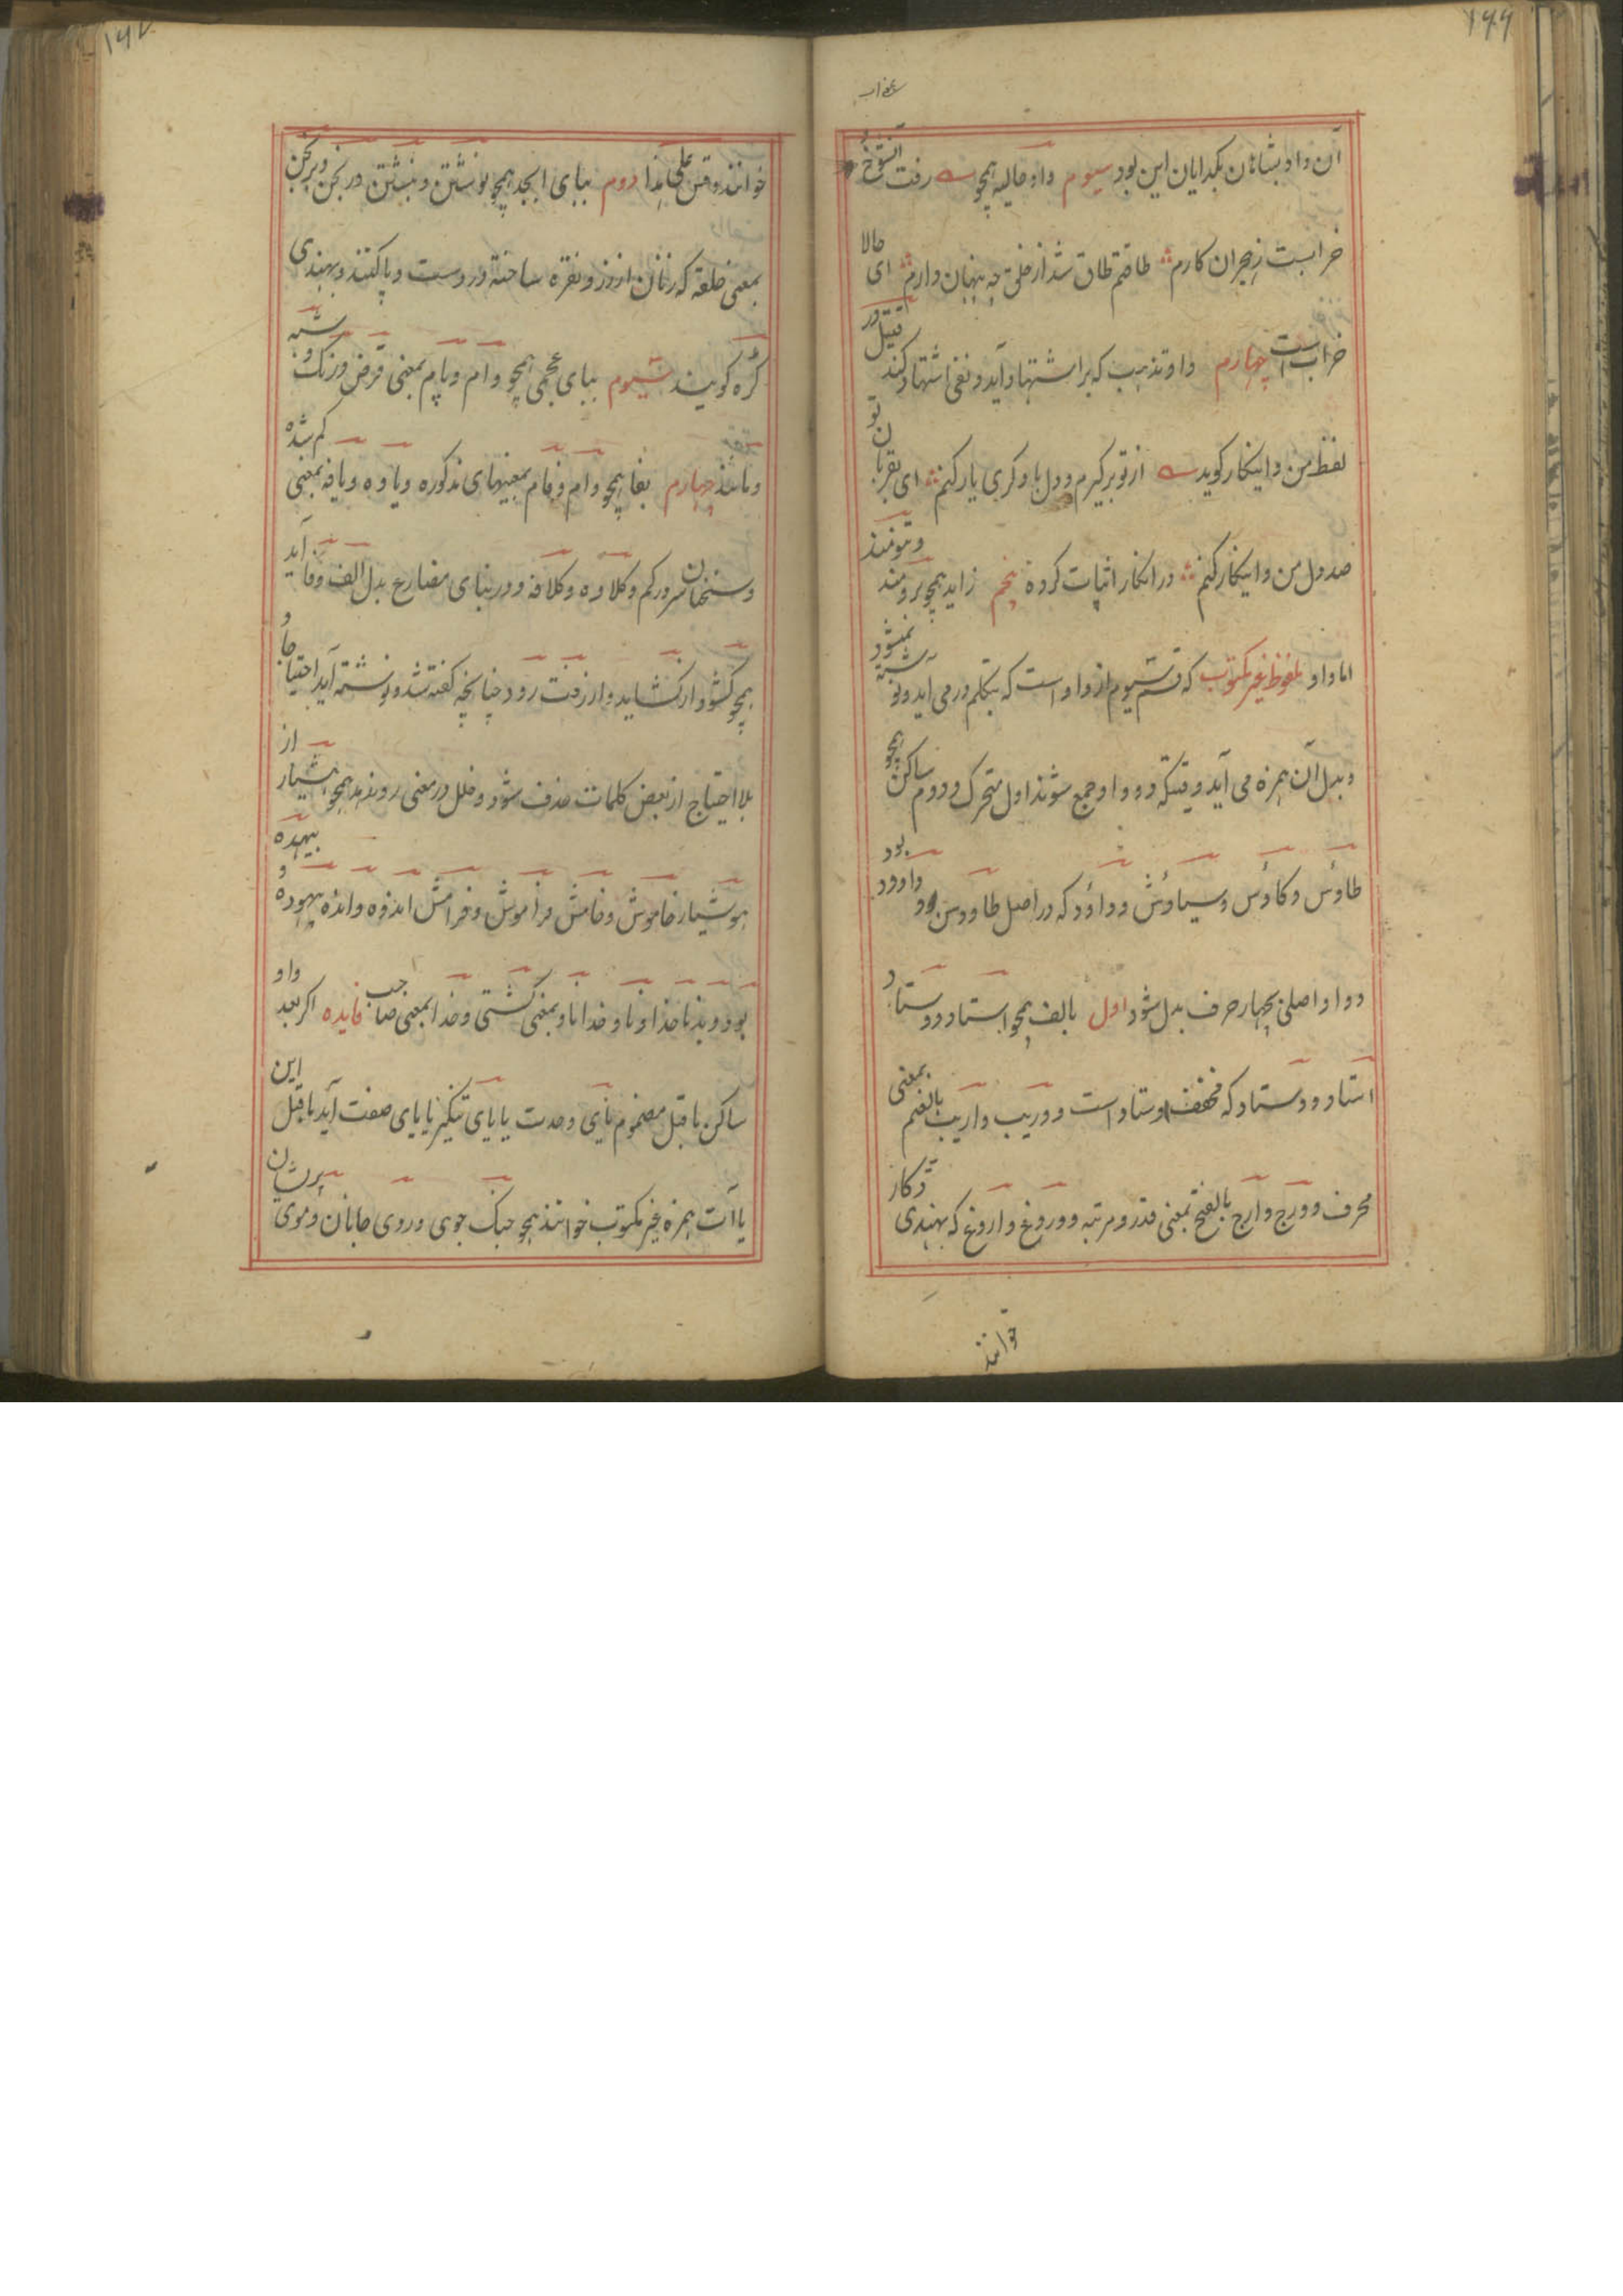 ۱۶۶
آن داد بشاهان بگدایان این بود سیوم واو حالیه همچو رفت آن شوخ
خرابست ز هجران کارم طاقتم طاق شد از خلق چه پنهان دارم ای حالا
خراب است چهارم واو تذبیب که برا ستشهاد آید و نفی استشهاد کند
لفظ من و اینکار گوید از تو برگیرم و دل با دگری یار کنم ای بقربان تو
صد دل من و اینکار کنم در انکار اثبات کرده پنجم زاید همچو برومند و تنومند
اما واو ملفوظ غیر مکتوب که قسم سیوم از واو است که بتکلم در می آید و نوشته نمیشود
و بدل آن همزه می آید وقتیکه دو واو جمع شوند اول متحرک و دوم ساکن همچو
طاؤس و کاؤس و سیاؤش و داؤد که در اصل طاووس و داوود بود
و واو اصلی بچهار حرف بدل شود اول بالف همچو استاد و وستاد
استاد و وستاد که مخفف اوستاد است و وریب و اریب بالضم بمعنی
محرف و ورج و ارج بالفتح بمعنی قدر و مرتبه و وروغ و اروغ که بهندی ڈکار
خوانند
۱۶۷
خوانند و قس علی هذا دوم ببای ابجد همچو نوشتن و نبشتن ورنجن و برنجن
بمعنی حلقه که زنان از زر و نقره ساخته در دست و پا کنند و بهندی
کره گویند سیوم ببای عجمی همچو وام و پام بمعنی قرض و رنگ و شبه
و مانند چهارم بفا همچو وام و فام بمعنیهای مذکوره و یاوه و یافه بمعنی گم شده
و سخنان سرد رکم و کلاوه و کلافه و در بنای مضارع بدل الف و فا آید
همچو گشود از گشاید و از رفت رود چنانچه گفته شد و نوشته آید احتیاجا و
بلا احتیاج از بعض کلمات حذف شود و خلل در معنی روندهد همچو هشیار از
هوشیار خاموش و خامش فراموش و فرامش اندوه و انده بیهوده و بیهده
بود و بد ناخدا و ناو خدا ناو بمعنی کشتی و خدا بمعنی صاحب فایده اگر بعد واو
ساکن ماقبل مضموم یای وحدت یا یای تنکیر یا یای صفت آید ماقبل این
یاآت همزه غیر مکتوب خوانند همچو جوی و روی جانان و موی پریشان